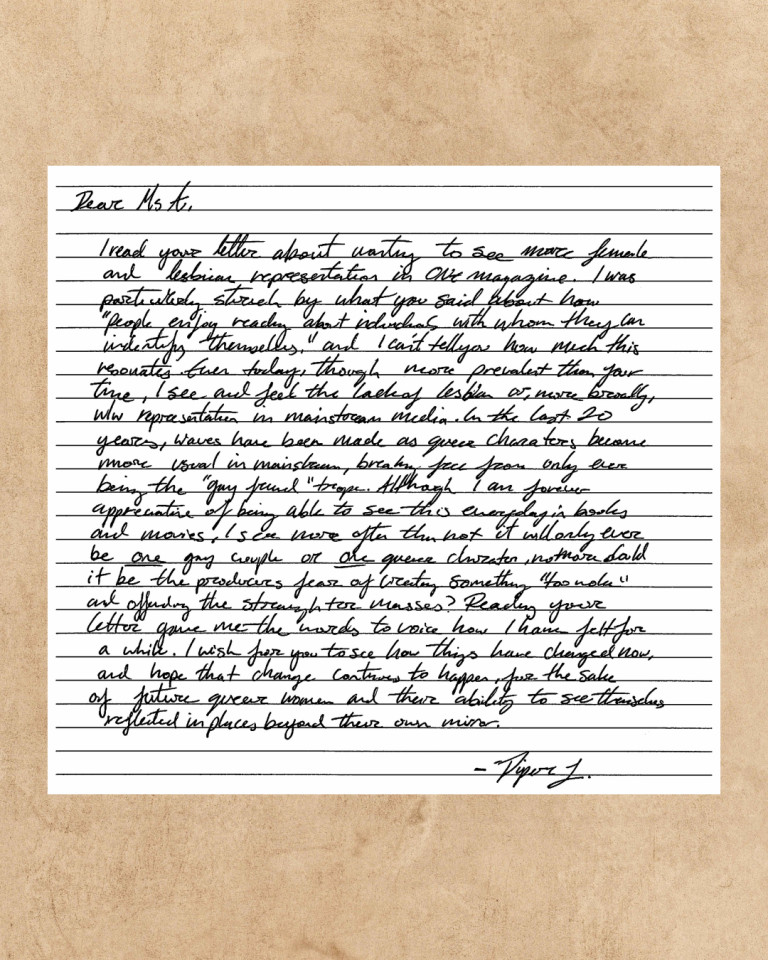 Dear Ms A.
I read your letter about wanting to see more female
and lesbian representation in ONE magazine. I was
particularly struck by what you said about how
"people enjoy reading about individuals with whom they can
indentify themselves," and I can't tell you how much this
resonates. Even today, though more prevalent than your
time, I see and feel the lack of lesbian or, more broadly,
wlw representation in mainstream media. In the last 20
years, waves have been made as queer characters become
more usual in mainstream, breaking free from only ever
being the "gay friend" trope. Although I am forever
appreciative of being able to see this everyday in books
and movies, I see more often than not it will only ever
be one gay couple or one queer character, no more. Could
it be the producers fear of creating something "too nola"
and offending the straighter masses? Reading your
letter gave me the words to voice how I have felt for
a while. I wish for you to see how things have changed now,
and hope that change continues to happen, for the sake
of future queer women and their ability to see themselves
reflected in places beyond their own mirror.
- Piper J.